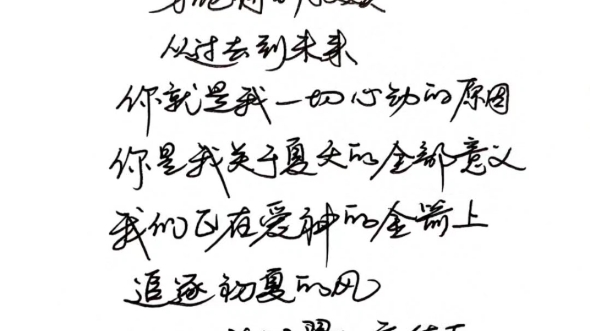 从过去到未来
你就是我一切心动的原因
你是我关于夏天的全部意义
我们正在爱神的金箭上
追逐初夏的风